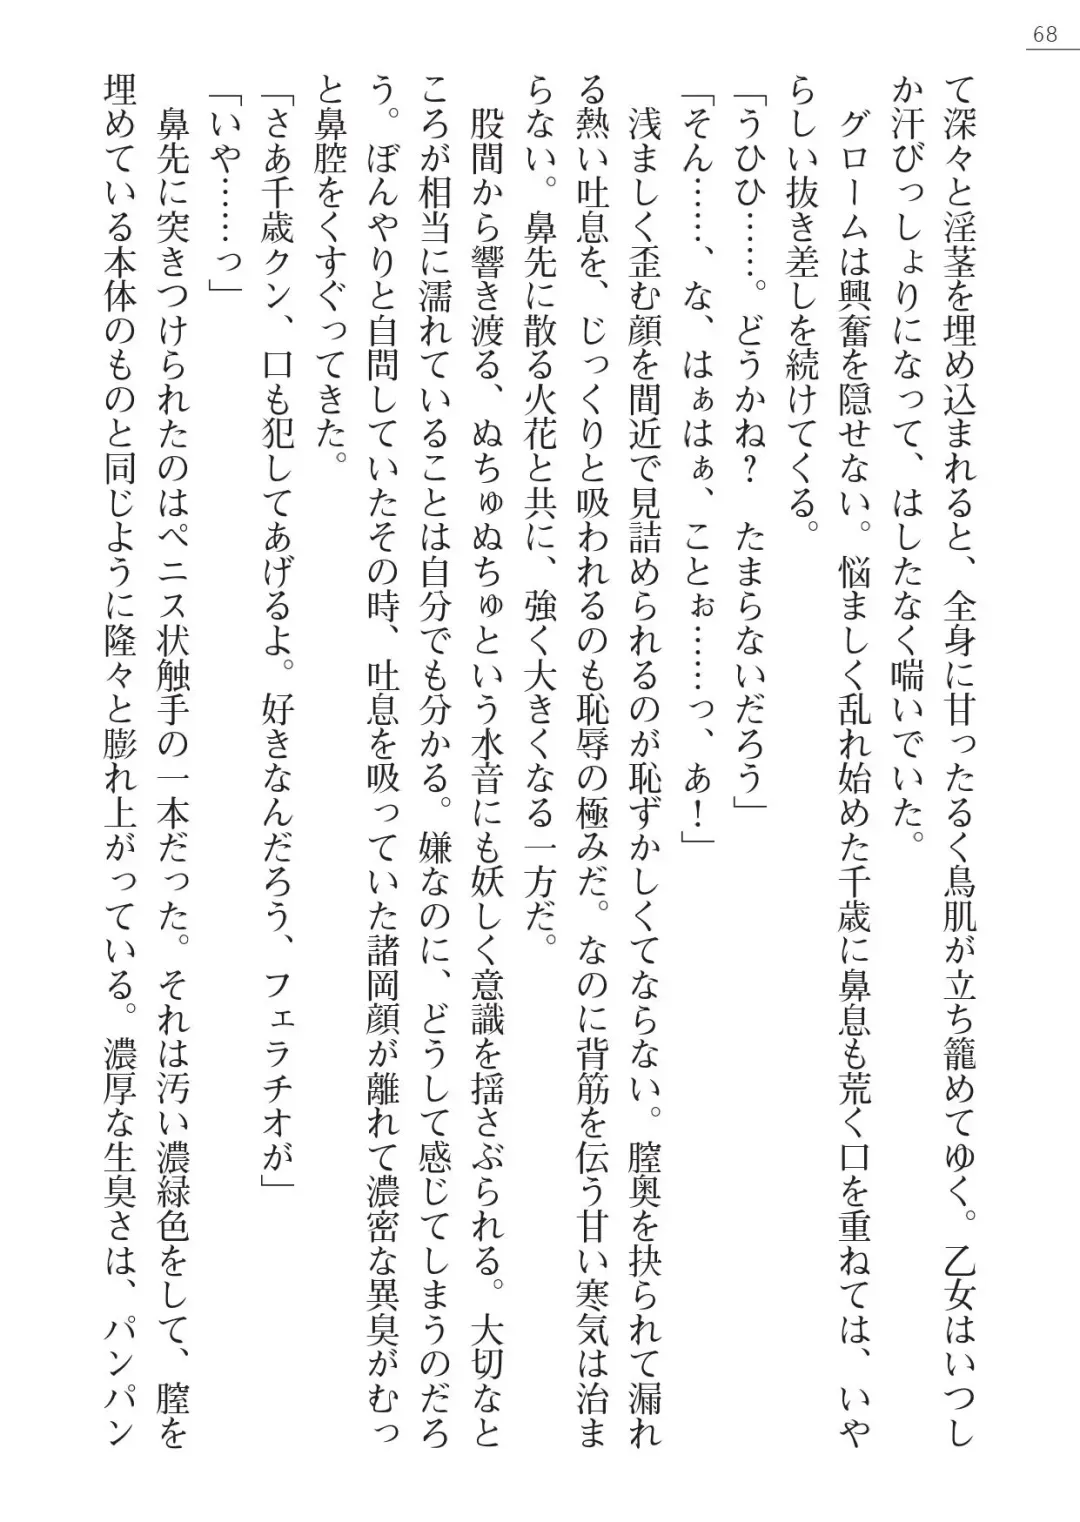 68
て深々と淫茎を埋め込まれると、全身に甘ったるく鳥肌が立ち籠めてゆく。乙女はいつし
か汗びっしょりになって、はしたなく喘いでいた。
グロームは興奮を隠せない。悩ましく乱れ始めた千歳に鼻息も荒く口を重ねては、いや
らしい抜き差しを続けてくる。
「うひひ……。どうかね？　たまらないだろう」
「そん……、な、はぁはぁ、ことぉ……っ、あ！」
浅ましく歪む顔を間近で見詰められるのが恥ずかしくてならない。膣奥を抉られて漏れ
る熱い吐息を、じっくりと吸われるのも恥辱の極みだ。なのに背筋を伝う甘い寒気は治ま
らない。鼻先に散る火花と共に、強く大きくなる一方だ。
股間から響き渡る、ぬちゅぬちゅという水音にも妖しく意識を揺さぶられる。大切なと
ころが相当に濡れていることは自分でも分かる。嫌なのに、どうして感じてしまうのだろ
う。ぼんやりと自問していたその時、吐息を吸っていた諸岡顔が離れて濃密な異臭がむっ
と鼻腔をくすぐってきた。
「さあ千歳クン、口も犯してあげるよ。好きなんだろう、フェラチオが」
「いや……っ」
鼻先に突きつけられたのはペニス状触手の一本だった。それは汚い濃緑色をして、膣を
埋めている本体のものと同じように隆々と膨れ上がっている。濃厚な生臭さは、パンパン